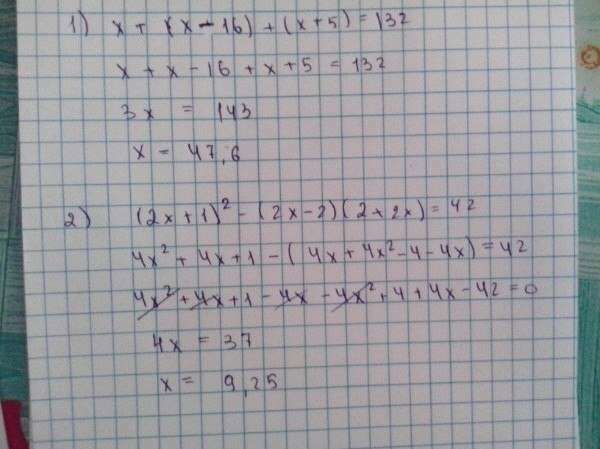 1) x + (x - 16) + (x + 5) = 132
x + x - 16 + x + 5 = 132
3x = 143
x = 47,6
2) (2x + 1)² - (2x - 2)(2 + 2x) = 42
4x² + 4x + 1 - (4x + 4x² - 4 - 4x) = 42
4x² + 4x + 1 - 4x - 4x² + 4 + 4x - 42 = 0
4x = 37
x = 9,25